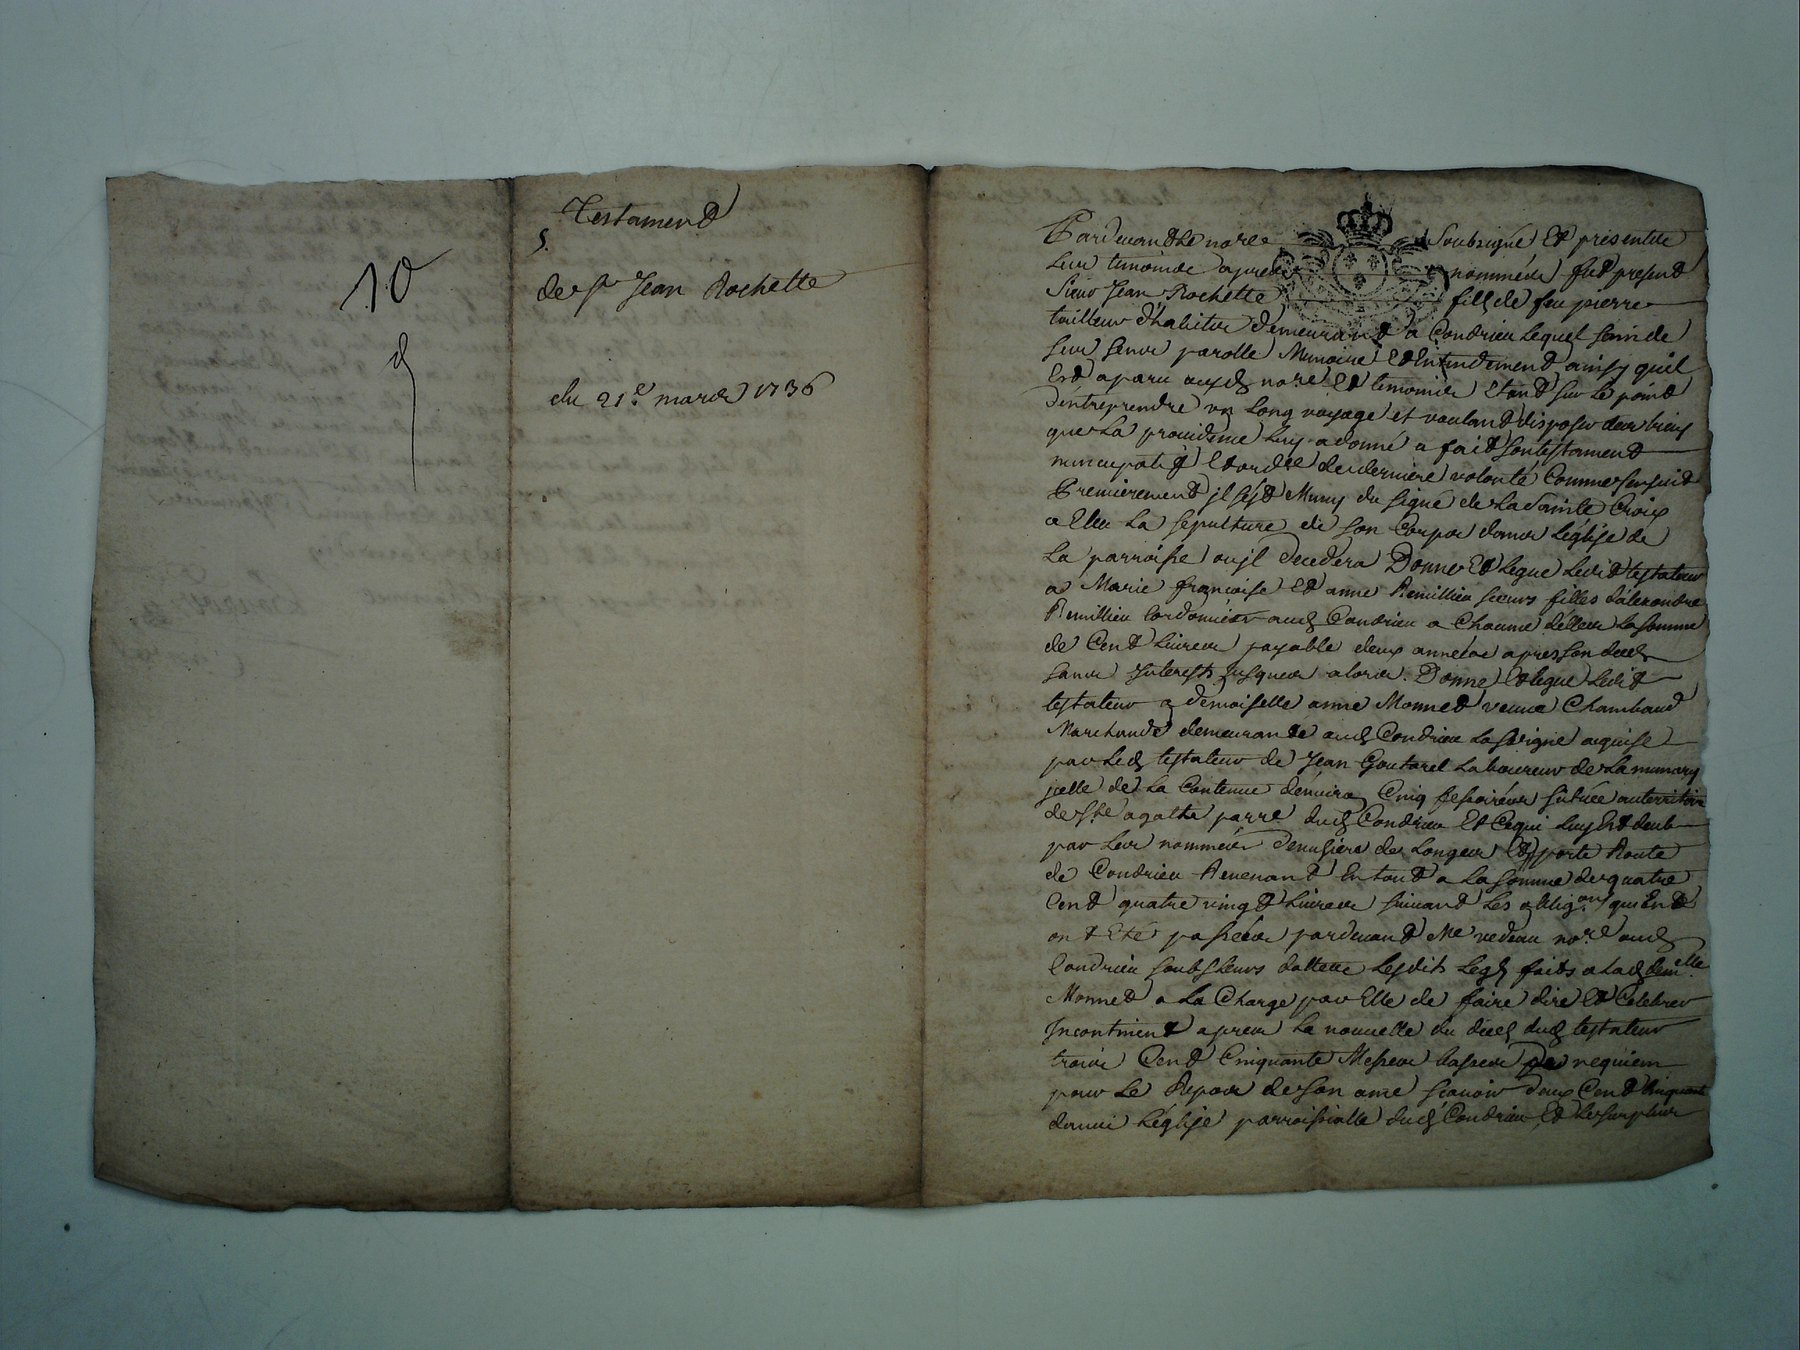 10
Testament
S.
de Sr Jean Rochette
du 21e mars 1736
Pardevant le nore soubsigné Et présent de
leur temoins apres nommées fut present
Sieur Jean Rochette fils de feu pierre
tailleur d'habits demeurant a Condrieu lequel sain de
ses sens parolle Memoire Et Entendement ainsy quil
Est aparu auxd nore Et temoins Etant sur le point
d'entreprendre un long voyage et voulant disposer des biens
que la providence luy a donné a fait son testament
nuncupatif Et ordre de derniere volonté Comme sensuit
Premierement il s'est Muny du signe de la Sainte Croix
a Eleu La sepulture de son Corps dans l'église de
La parroisse ou jl decedera Donne Et Legue ledit testateur
a Marie françoise Et anne Remillieu sœurs filles d'alexandre
Remillieu Cordonnier aud Condrieu a Chacune d'elles la somme
de Cent livres payable deux années apres son decès
sans Interests jusques alors. Donne Et legue ledit
testateur a demoiselle anne Monnet veuve Chambaud
Marchande demeurante aud Condrieu la vigne aquise
par led testateur de Jean Goutarel Laboureur de
de La Contenue d'environ Cinq situee au territoire
de Ste agathe parre dud Condrieu Et Ce qui luy Est deub
par les nommées de Longes Et porte Route
de Condrieu Revenant En tout a La somme de quatre
Cent quatre vingt livres suivant les obligons qui En
ont Eté passées pardevant Me vedeau nore aud
Condrieu soubs leurs dattes Lesdits Legs faits a lad demlle
Monnet a La Charge par Elle de faire dire Et Celebrer
Incontinent apres La nouvelle du deces dud testateur
trois Cent Cinquante Messes basses de requiem
pour Le Repos de son ame scavoir deux Cent Cinquante
dans l'église parroissialle dud Condrieu Et le surplus